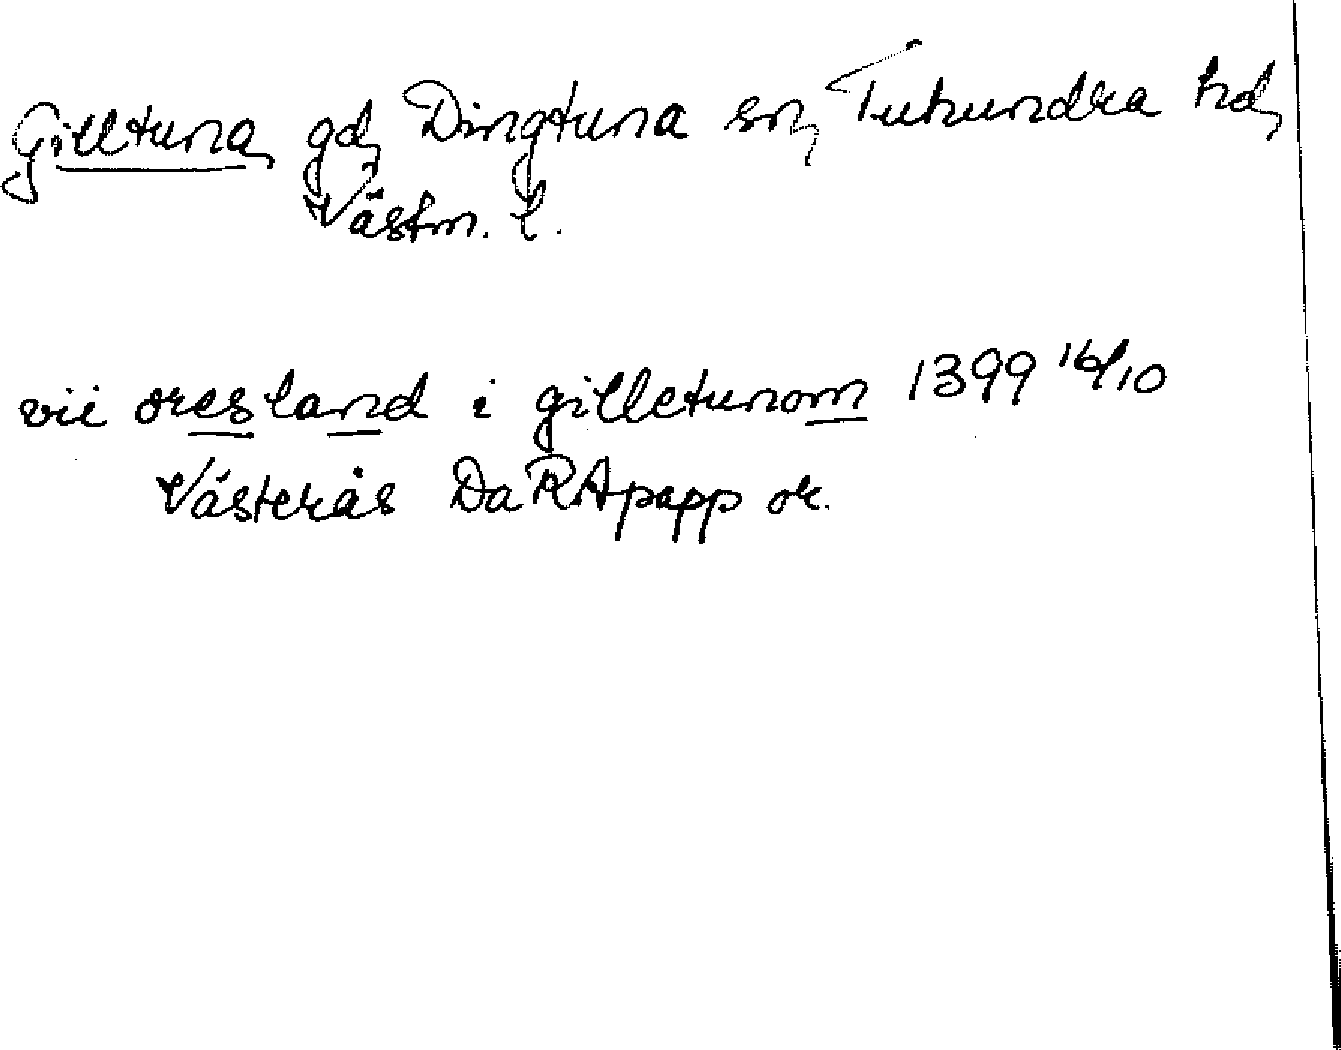 Gilltuna, gd, Dingtuna sn, Tuhundra hd,
Västm. l.
vii øresland i gilletunom 1399 16/10
Västerås Da RApapp or.